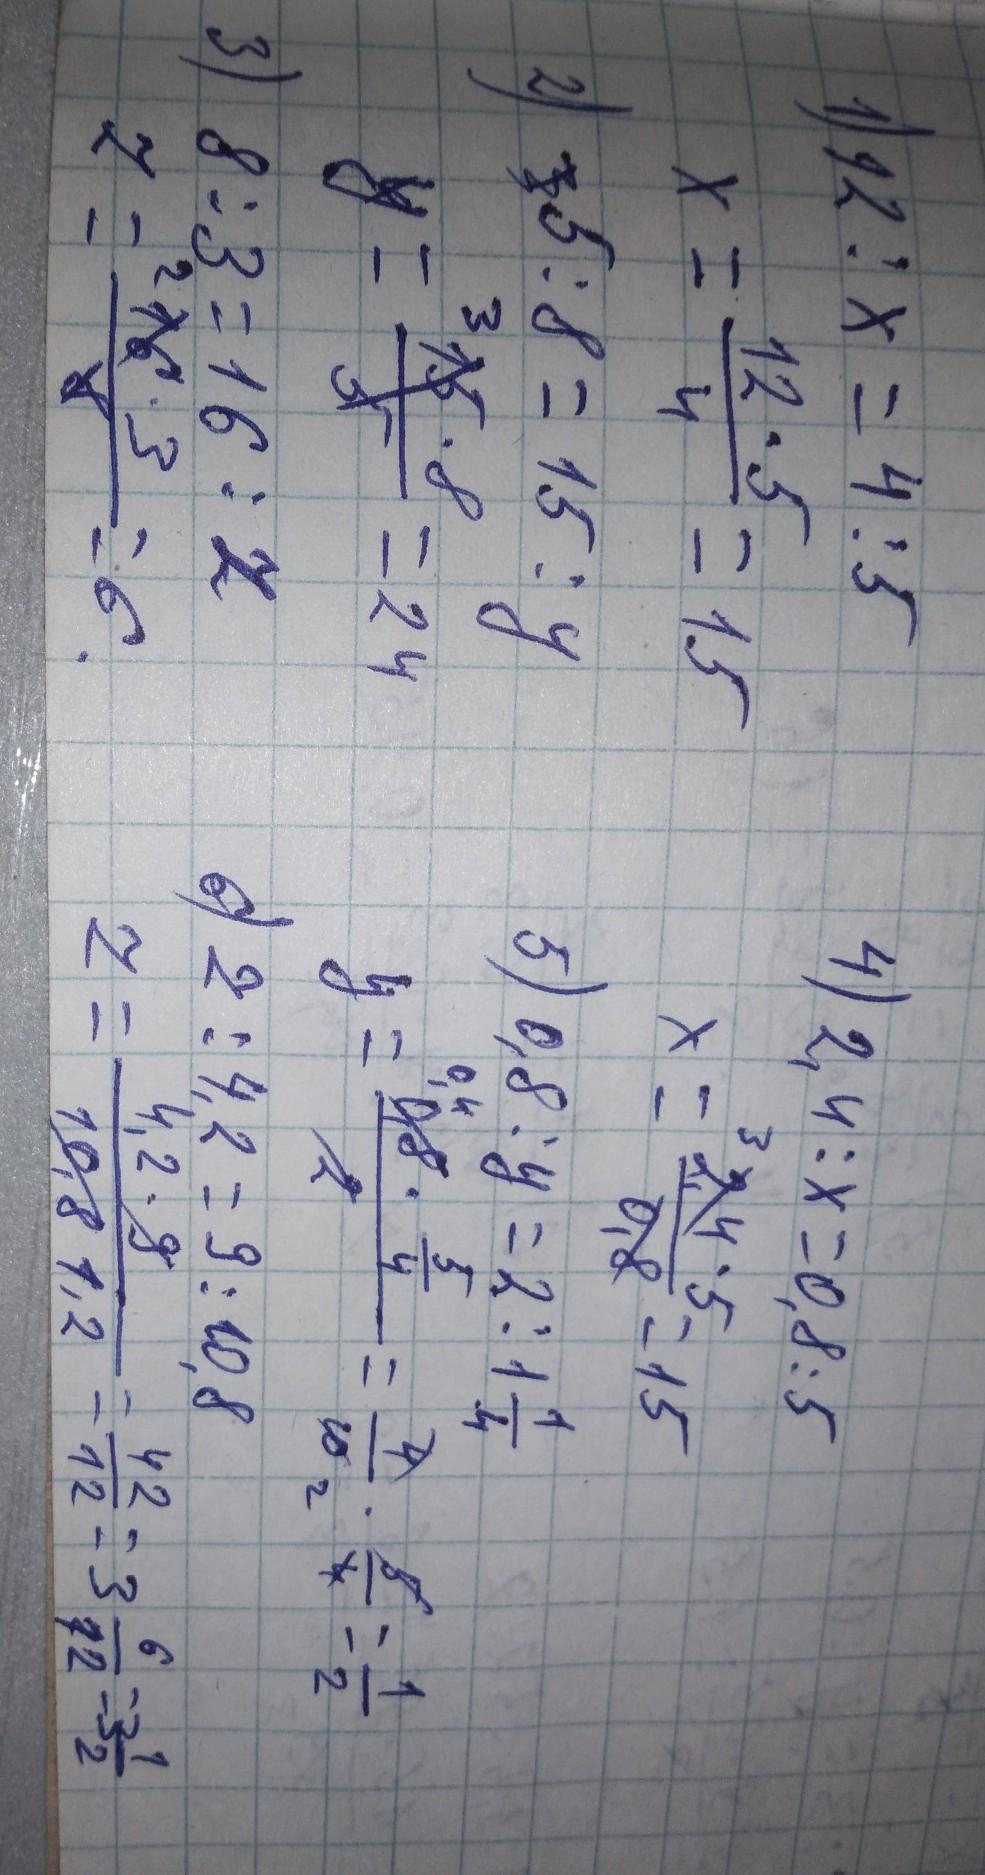 1) 12 : x = 4 : 5
x = 12 · 5 / 4 = 15
2) 5 : 8 = 15 : y
y = 15 · 8 / 5 = 24
3
3) 8 : 3 = 16 : z
z = 16 · 3 / 8 = 6.
2
4) 2,4 : x = 0,8 : 5
x = 2,4 · 5 / 0,8 = 15
3
5) 0,8 : y = 2 : 1 1/4
y = 0,8 · 5/4 / 2 = 4/10 · 5/4 = 1/2
0,4
2
6) 2 : 4,2 = 9 : 10,8
z = 4,2 · 9 / 10,8 1,2 = 42/12 = 3 6/12 = 3 1/2